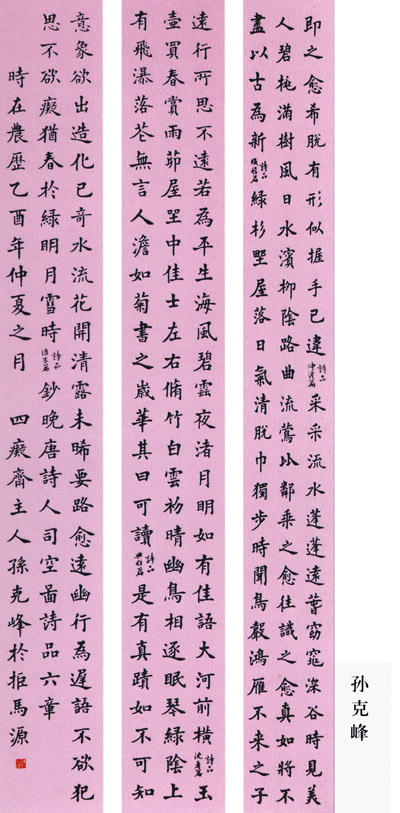 即之愈希脫有形似握手已違詩品冲淡篇采采流水蓬蓬遠萅窈窕深谷時見美
人碧桃滿樹風日水濱柳陰路曲流鶯比鄰乘之愈往識之愈真如將不
盡以古為新詩品綠杉埜屋落日氣清脫巾獨步時聞鳥聲鴻雁不來之子
遠行所思不遠若為平生海風碧雲夜渚月明如有佳語大河前橫詩品沈著篇玉
壺買春賞雨茆屋坐中佳士左右脩竹白雲初晴幽鳥相逐眠琴綠陰上
有飛瀑落花無言人澹如菊書之歲華其曰可讀詩品典雅篇是有真蹟如不可知
意象欲出造化已奇水流花開清露未晞要路愈遠幽行為遲語不欲犯
思不欲癡猶春於綠明月雪時詩品鈔晚唐詩人司空啚詩品六章
時在農歷乙酉年仲夏之月 四癡齋主人孫克峰於拒馬源
孙克峰